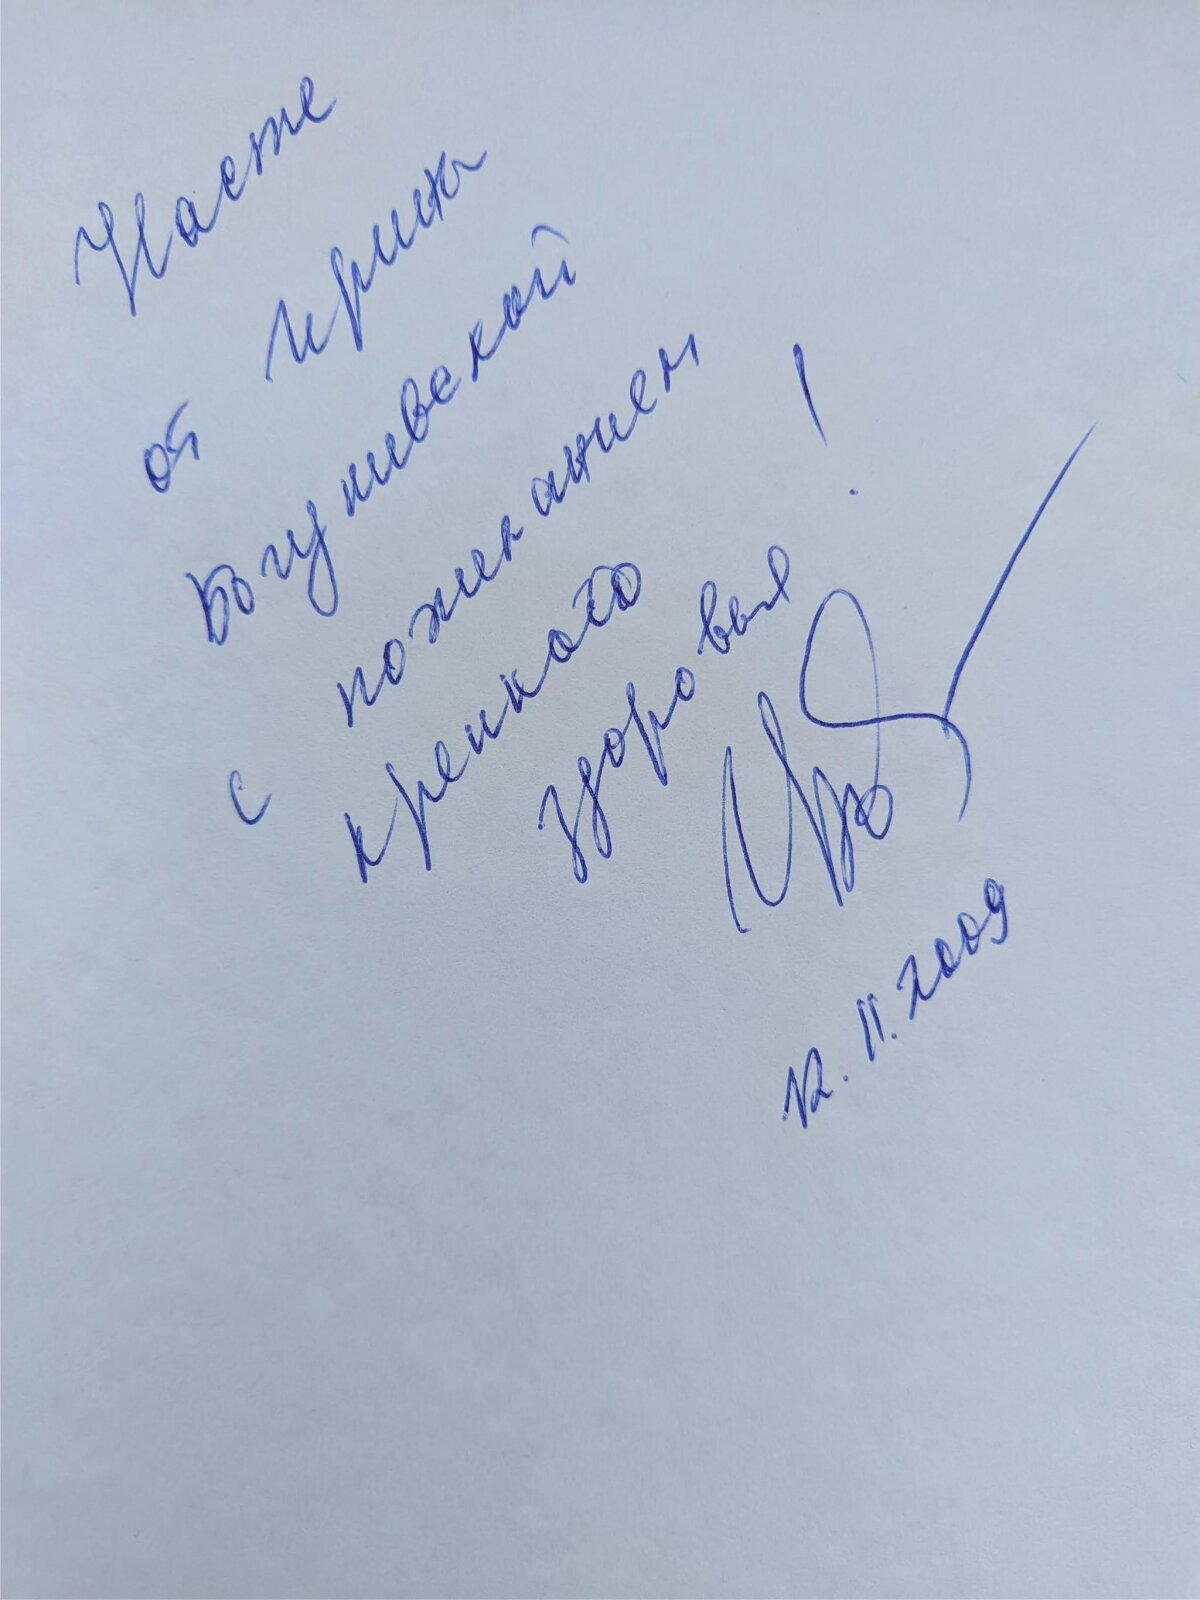 Насте
от Ирины
Богушевской
с пожеланием
крепкого
здоровья!
12.11.2009